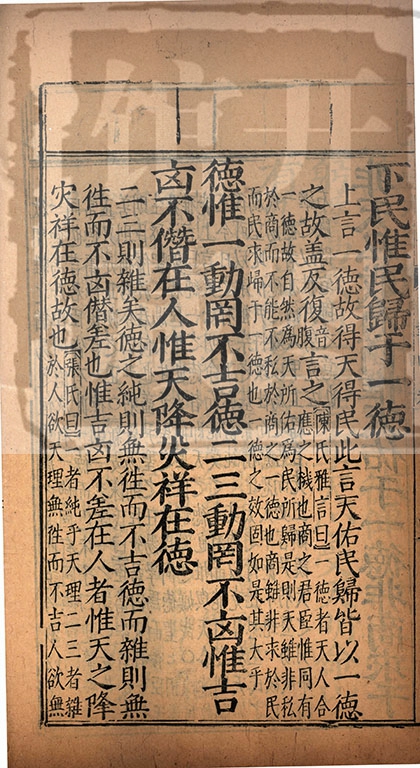 下民惟民歸于一德
上言一德故得天得民此言天佑民歸皆以一德
之故盖反復音腹言之陳氏雅言曰一德者天人合
應之機也商之君臣惟同有
一德故自然為天所佑為民所歸是則天雖非私
於商而不能不私於商之一德也商雖非求於民
而民求歸于一德也一德之效固如是其大乎
德惟一動罔不吉德二三動罔不凶惟吉
凶不僭在人惟天降災祥在德
二三則雜矣德之純則無徃而不吉德而雜則無
徃而不凶僭差也惟吉凶不差在人者惟天之降
災祥在德故也張氏曰一者純乎天理二三者雜
於人欲天理無徃而不吉人欲無